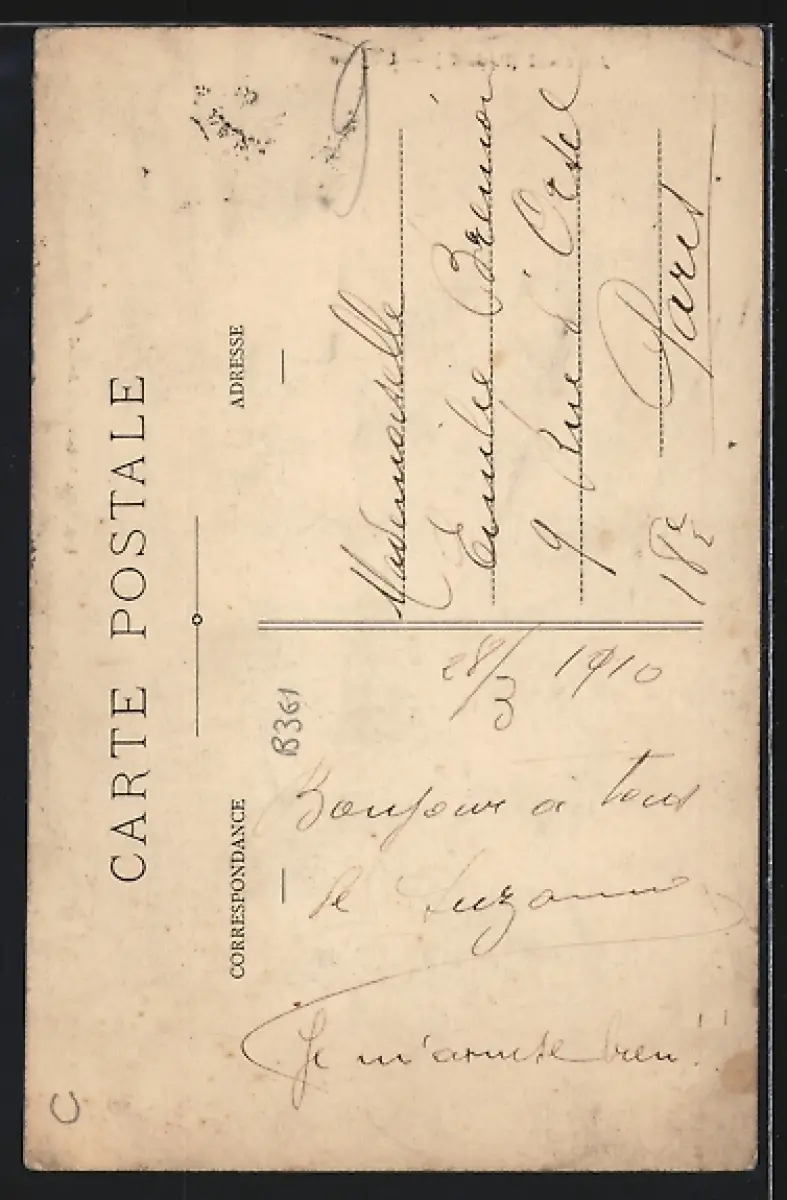 CARTE POSTALE
CORRESPONDANCE
ADRESSE
B361
28/3 1910
Bonjour à tous
de Suzanne
Je m'amuse bien!!
Mademoiselle
Emilie
9 Rue d'Orsel
Paris
18e
C